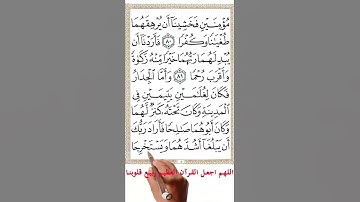 مُؤْمِنَيْنِ فَخَشِينَآ أَن يُرْهِقَهُمَا
طُغْيَٰنًا وَكُفْرًا ٨٠ فَأَرَدْنَآ أَن
يُبْدِلَهُمَا رَبُّهُمَا خَيْرًا مِّنْهُ زَكَوٰةً
وَأَقْرَبَ رُحْمًا ٨١ وَأَمَّا ٱلْجِدَارُ
فَكَانَ لِغُلَٰمَيْنِ يَتِيمَيْنِ فِى
ٱلْمَدِينَةِ وَكَانَ تَحْتَهُۥ كَنزٌ لَّهُمَا
وَكَانَ أَبُوهُمَا صَٰلِحًا فَأَرَادَ رَبُّكَ
أَن يَبْلُغَآ أَشُدَّهُمَا وَيَسْتَخْرِجَا
اللهم اجعل القرآن العظيم ربيع قلوبنا